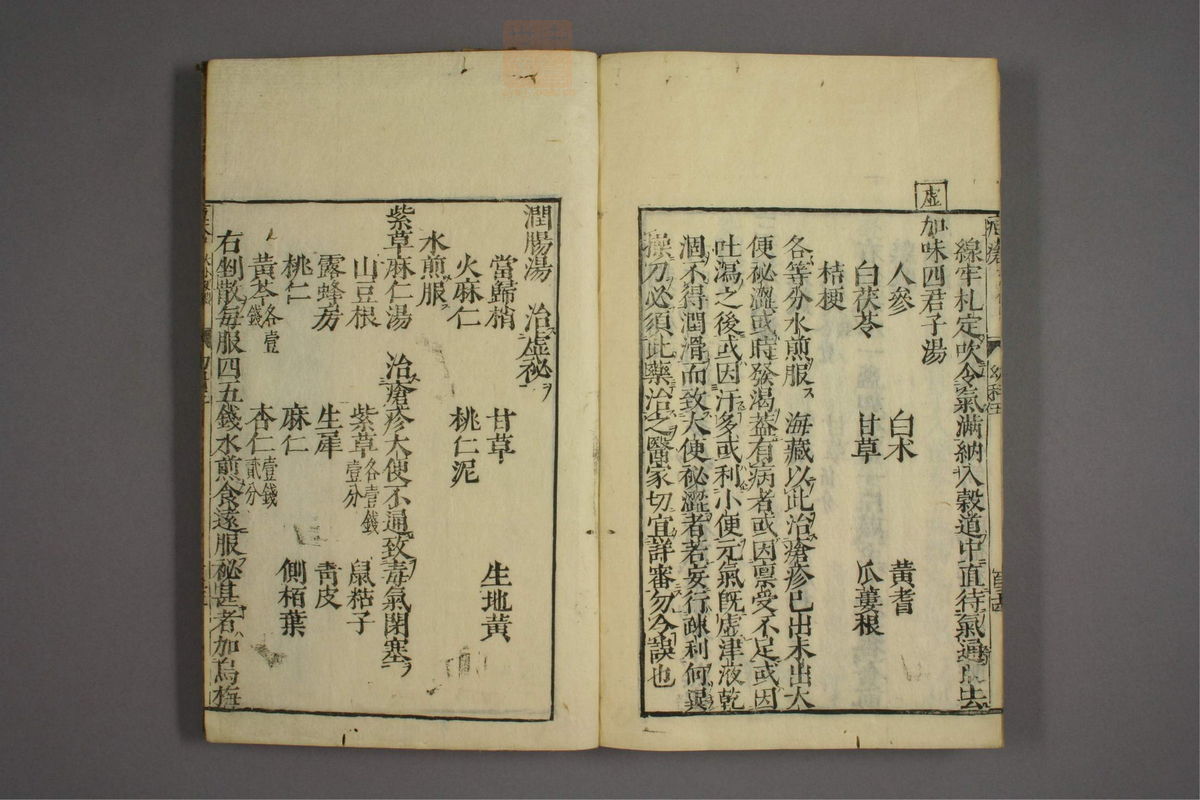 線牢札定吹令氣滿納入穀道中直待氣通取去
虛
加味四君子湯
人參 白朮 黄耆
白茯苓 甘草 瓜蔞根
桔梗
各等分水煎服 海藏以此治瘡疹已出未出大
便秘澀或時發渴蓋有病者或因禀受不足或因
吐瀉之後或因汗多或利小便元氣既虛津液乾
涸不得潤滑而致大便秘澀者若妄行疎利何異
操刀必須此藥治之醫家切宜詳審勿令誤也
潤腸湯 治虛秘ヲ
當歸梢 甘草 生地黄
火麻仁 桃仁泥
水煎服
紫草麻仁湯 治瘡疹大便不通致毒氣閉塞ヲ
山豆根 紫草各壹錢壹分 鼠粘子
露蜂房 生犀 靑皮
桃仁 麻仁 側栢葉
黄芩各壹錢 杏仁壹錢貳分
右剉散每服四五錢水煎食遠服秘甚者加烏梅